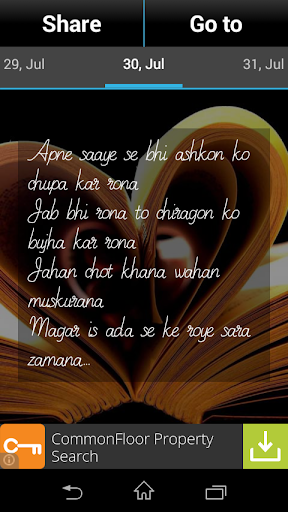 Share
Go to
29, Jul
30, Jul
31, Jul
Apne saaye se bhi ashkon ko
chupa kar rona
Jab bhi rona to chiragon ko
bujha kar rona
Jahan chot khana wahan
muskurana
Magar is ada se ke roye sara
zamana...
CommonFloor Property
Search